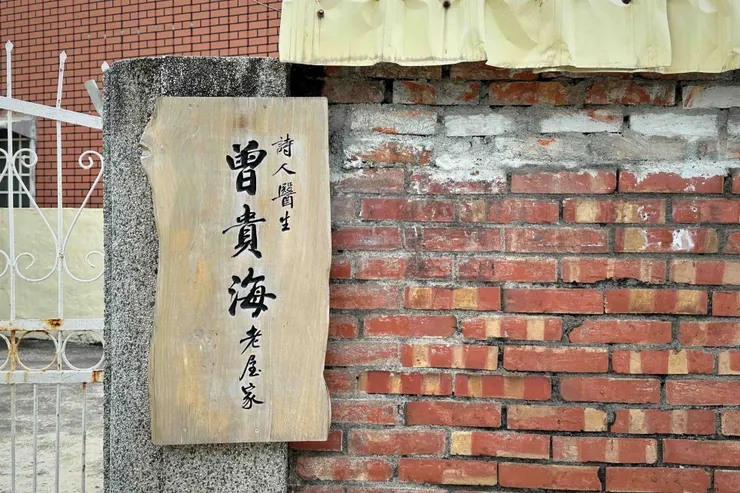 詩人醫生
曾貴海老屋家